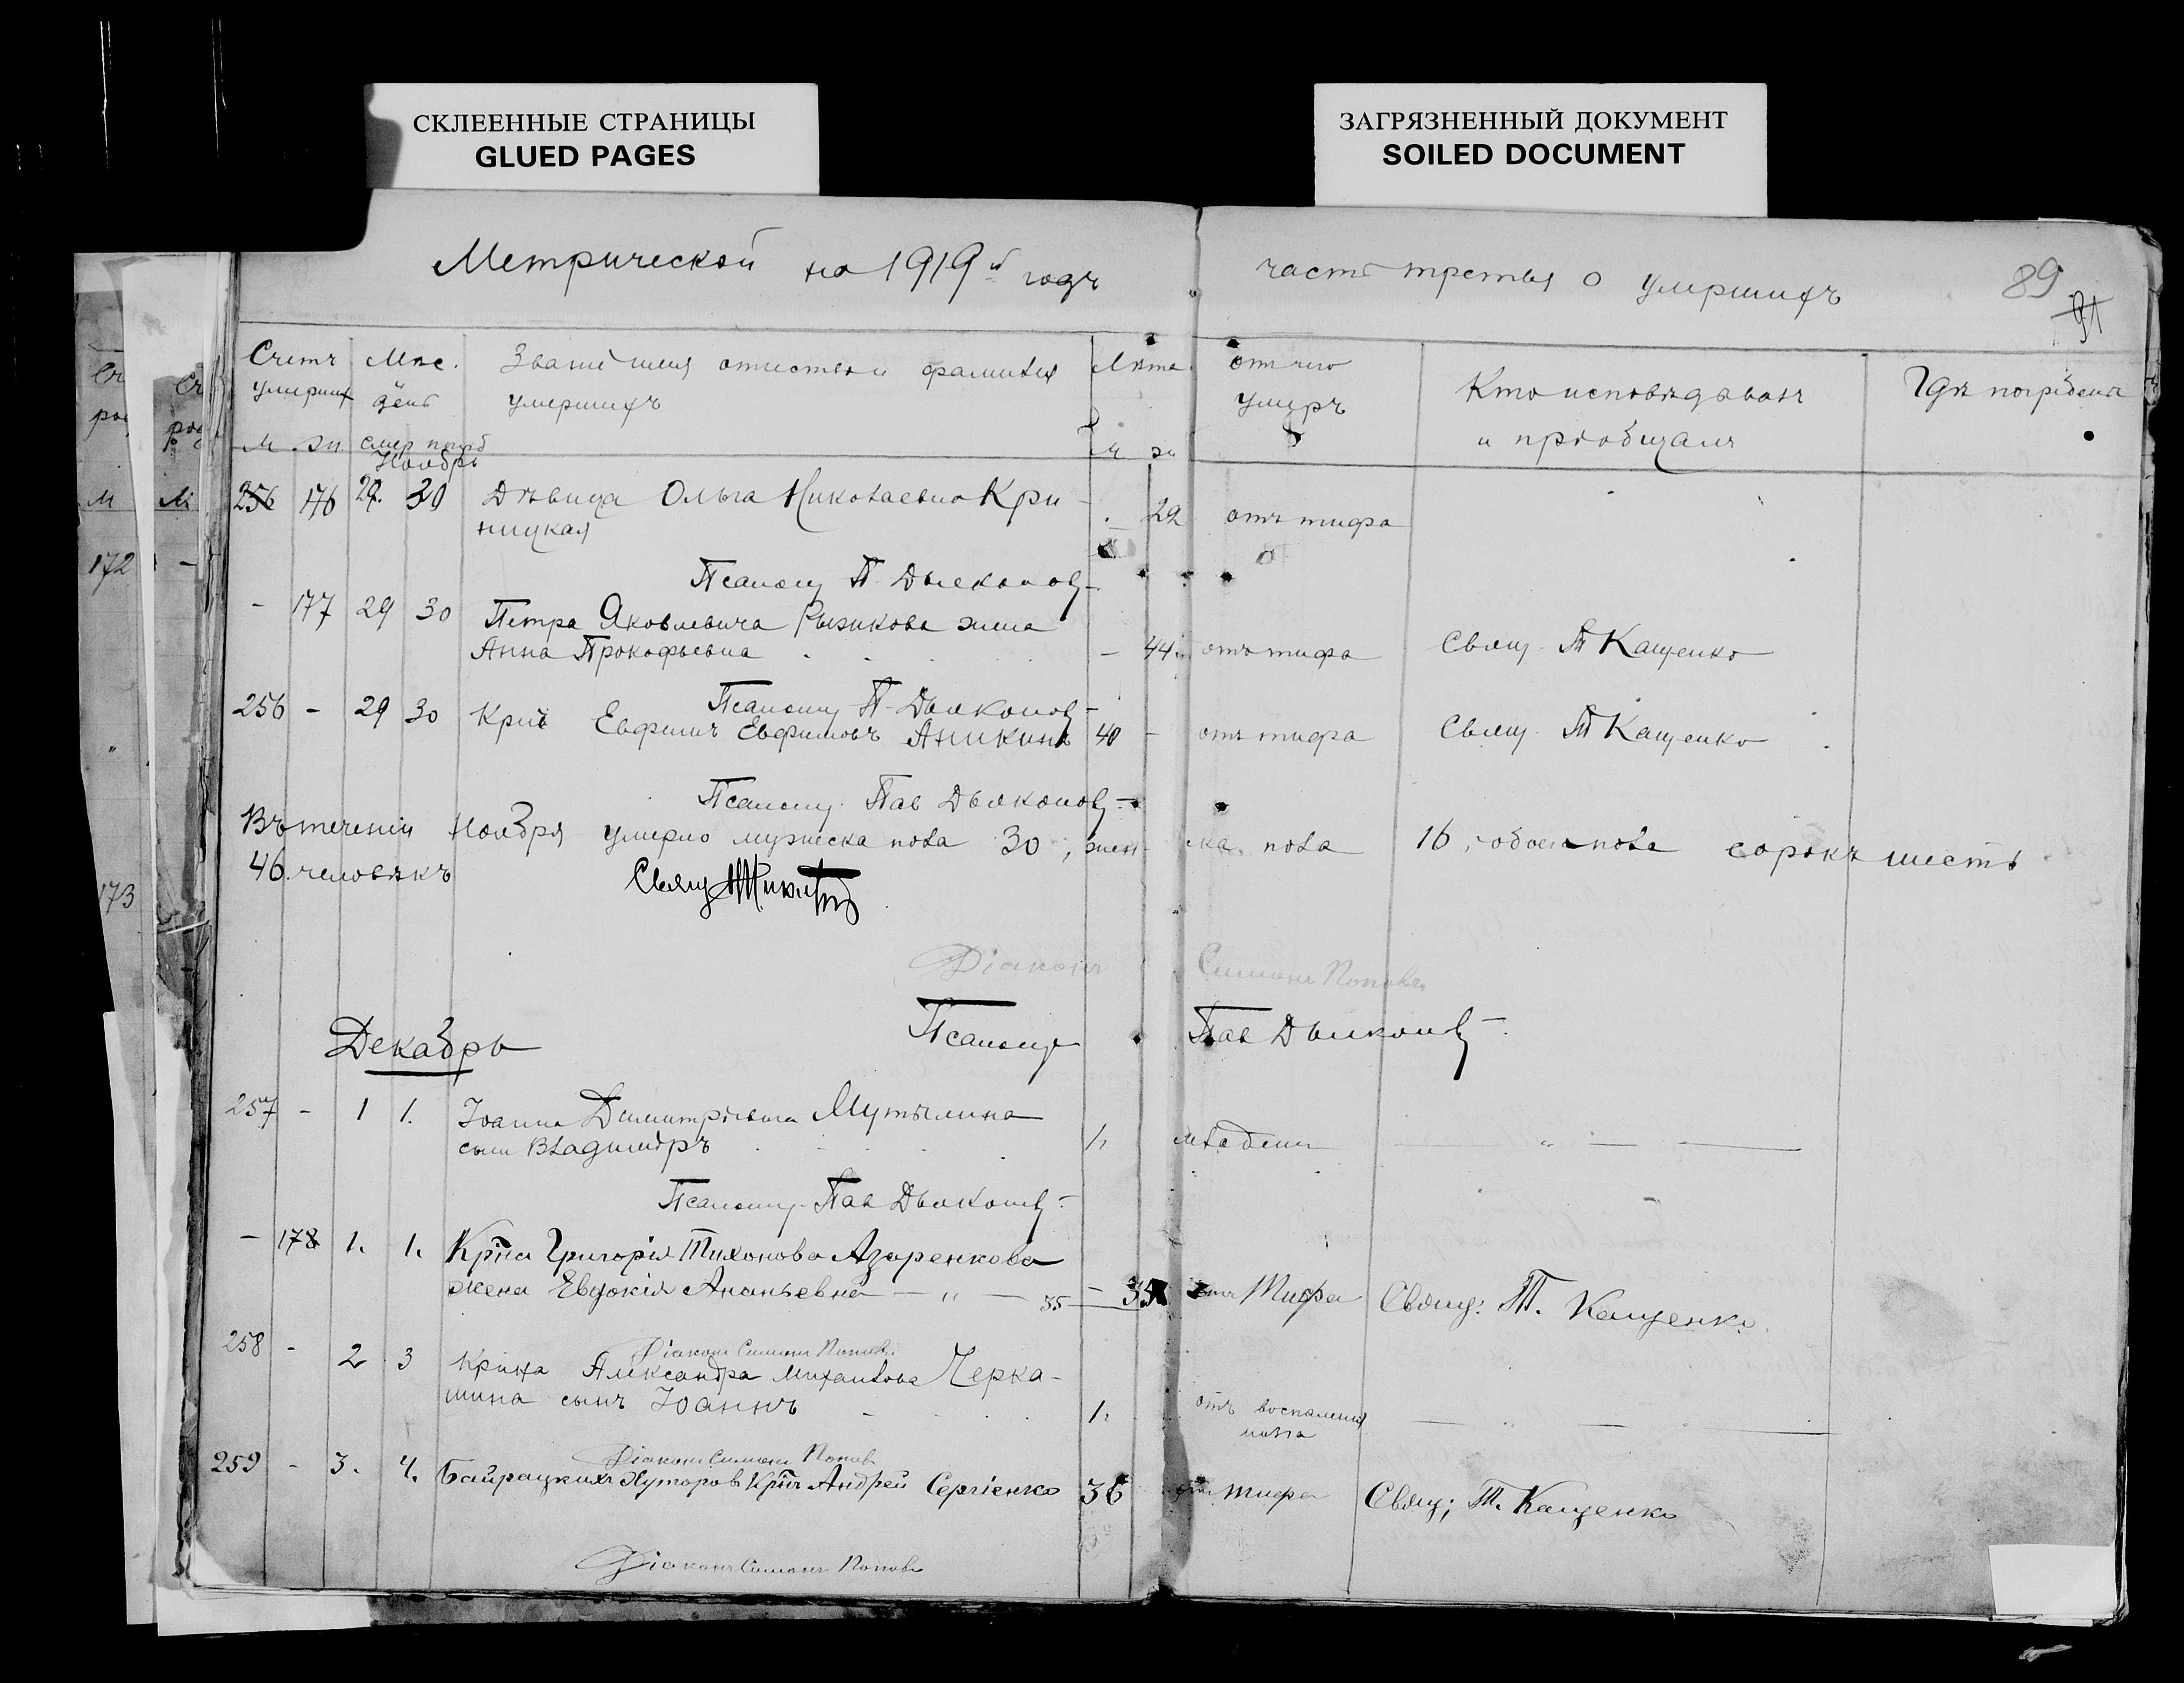 СКЛЕЕННЫЕ СТРАНИЦЫ
GLUED PAGES
ЗАГРЯЗНЕННЫЙ ДОКУМЕНТ
SOILED DOCUMENT
Метрической на 1919й годъ часть третья о умершихъ 89
91
Счетъ умерших
Мѣс. день
Званіе имя отчество и фамилія
умершихъ
Лѣта
отъ чего
умеръ
Кто исповѣдывалъ
и пріобщалъ
Гдѣ погребенъ
м. жн. смер погрб м жн
Ноябрь
256 176 29. 30 Дѣвица Ольга Николаевна Кри-
ницкая - 22 отъ тифа
Псаломщ П. Дьяконов
- 177 29 30 Петра Яковлевича Рыжкова жена
Анна Прокофьевна - 44 отъ тифа Свящ. Т Кащенко
Псаломщ П. Дьяконов
256 - 29 30 Крнъ Евфимъ Евфимовъ Аникинъ 40 - отъ тифа Свящ. Т Кащенко
Псаломщ. Пав Дьяконов
Въ теченіи Ноября умерло мужеска пола 30, женска пола 16, обоего пола сорокъ шесть
46 человѣкъ
Свящ
Діаконъ Симеонъ Поповъ
Псаломщ Пав Дьяконов
Декабрь
257 - 1 1. Іоанна Димитріевича Мутылина
сынъ Владиміръ 1. младенч
Псаломщ. Пав Дьяконов
- 178 1. 1. Крнa Григорія Тихонова Азаренкова
жена Евдокія Ананьевна — „ — 35 - 35 отъ Тифа Свящ: Т. Кащенко.
Діаконъ Симеонъ Поповъ
258 - 2 3 Крнна Александра Михайлова Черка-
шина сынъ Іоаннъ 1. отъ воспаленія
Діаконъ Симеонъ Попов
259 - 3. 4. Байрацкихъ Хуторов Крнъ Андрей Сергіенко 36 отъ тифа Свящ; Т. Кащенко
Діаконъ Симеонъ Поповъ
172
173